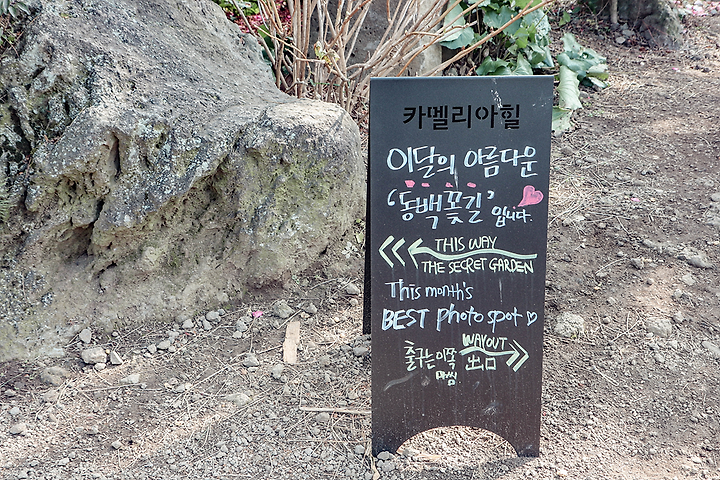 카멜리아힐
이달의 아름다운
'동백꽃길' 입니다.
THIS WAY
THE SECRET GARDEN
This month's
BEST photo spot
WAY OUT
출구는 이쪽